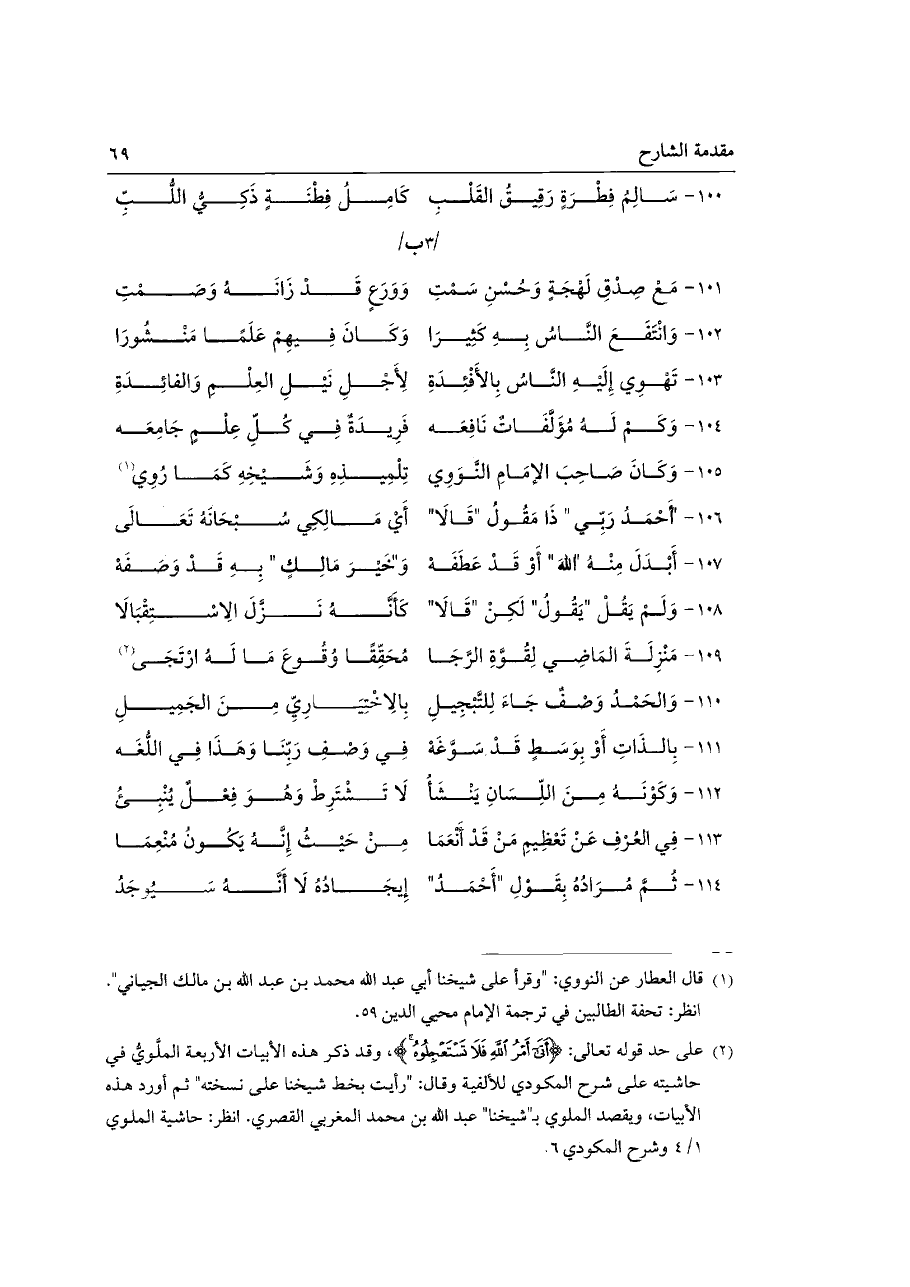 مقدمة الشارح ٦٩
١٠٠- سَالِمُ فِطْرَةٍ رَقِيقُ القَلْبِ كَامِلُ فِطْنَةٍ ذَكِيُّ اللُّبِّ
/٣ب/
١٠١- مَعْ صِدْقِ لَهْجَةٍ وَحُسْنِ سَمْتِ وَوَرَعٍ قَدْ زَانَهُ وَصَمْتِ
١٠٢- وَانْتَفَعَ النَّاسُ بِهِ كَثِيرَا وَكَانَ فِيهِمْ عَلَمًا مَنْشُورَا
١٠٣- تَهْوِي إِلَيْهِ النَّاسُ بِالأَفْئِدَةِ لِأَجْلِ نَيْلِ العِلْمِ وَالفَائِدَةِ
١٠٤- وَكَمْ لَهُ مُؤَلَّفَاتٌ نَافِعَه فَرِيدَةٌ فِي كُلِّ عِلْمٍ جَامِعَه
١٠٥- وَكَانَ صَاحِبَ الإِمَامِ النَّوَوِي تِلْمِيذِهِ وَشَيْخِهِ كَمَا رُوِي(١)
١٠٦- "أَحْمَدُ رَبِّي" ذَا مَقُولُ "قَالَا" أَيْ مَالِكِي سُبْحَانَهُ تَعَالَى
١٠٧- أَبْدَلَ مِنْهُ "اللهَ" أَوْ قَدْ عَطَفَهْ وَ"خَيْرَ مَالِكٍ" بِهِ قَدْ وَصَفَهْ
١٠٨- وَلَمْ يَقُلْ "يَقُولُ" لَكِنْ "قَالَا" كَأَنَّهُ نَزَّلَ الِاسْتِقْبَالَا
١٠٩- مَنْزِلَةَ المَاضِي لِقُوَّةِ الرَّجَا مُحَقِّقًا وُقُوعَ مَا لَهُ ارْتَجَى(٢)
١١٠- وَالحَمْدُ وَصْفٌ جَاءَ لِلتَّبْجِيلِ بِالِاخْتِيَارِيِّ مِنَ الجَمِيلِ
١١١- بِالذَّاتِ أَوْ بِوَسَطٍ قَدْ سَوَّغَهْ فِي وَصْفِ رَبِّنَا وَهَذَا فِي اللُّغَه
١١٢- وَكَوْنَهُ مِنَ اللِّسَانِ يَنْشَأُ لَا تَشْتَرِطْ وَهُوَ فِعْلٌ يُنْبِئُ
١١٣- فِي العُرْفِ عَنْ تَعْظِيمِ مَنْ قَدْ أَنْعَمَا مِنْ حَيْثُ إِنَّهُ يَكُونُ مُنْعِمَا
١١٤- ثُمَّ مُرَادُهُ بِقَوْلِ "أَحْمَدُ" إِيجَادُهُ لَا أَنَّهُ سَيُوجَدُ
(١) قال العطار عن النووي: "وقرأ على شيخنا أبي عبد الله محمد بن عبد الله بن مالك الجياني".
انظر: تحفة الطالبين في ترجمة الإمام محيي الدين ٥٩.
(٢) على حد قوله تعالى: ﴿أَتَىٰٓ أَمْرُ ٱللَّهِ فَلَا تَسْتَعْجِلُوهُ ۚ﴾، وقد ذكر هذه الأبيات الأربعة الملَّويُّ في
حاشيته على شرح المكودي للألفية وقال: "رأيت بخط شيخنا على نسخته" ثم أورد هذه
الأبيات، ويقصد الملوي بـ"شيخنا" عبد الله بن محمد المغربي القصري. انظر: حاشية الملوي
١/ ٤ وشرح المكودي ٦.